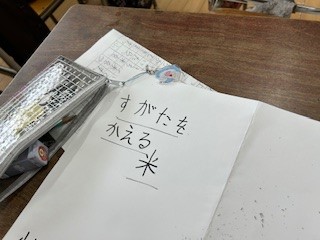 すがたを
かえる
米